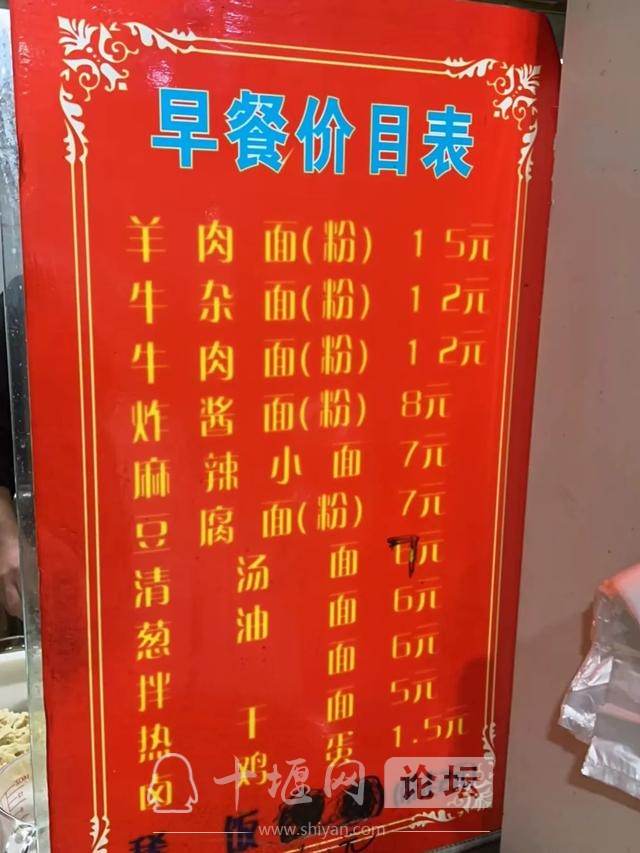 早餐价目表
羊肉面(粉) 15元
牛杂面(粉) 12元
牛肉面(粉) 12元
炸酱面(粉) 8元
麻辣小面 7元
豆腐面(粉) 7元
清汤面 7元
葱油面 6元
拌面 6元
热干面 5元
卤鸡蛋 1.5元
饭
十堰网 论坛
www.shiyan.com